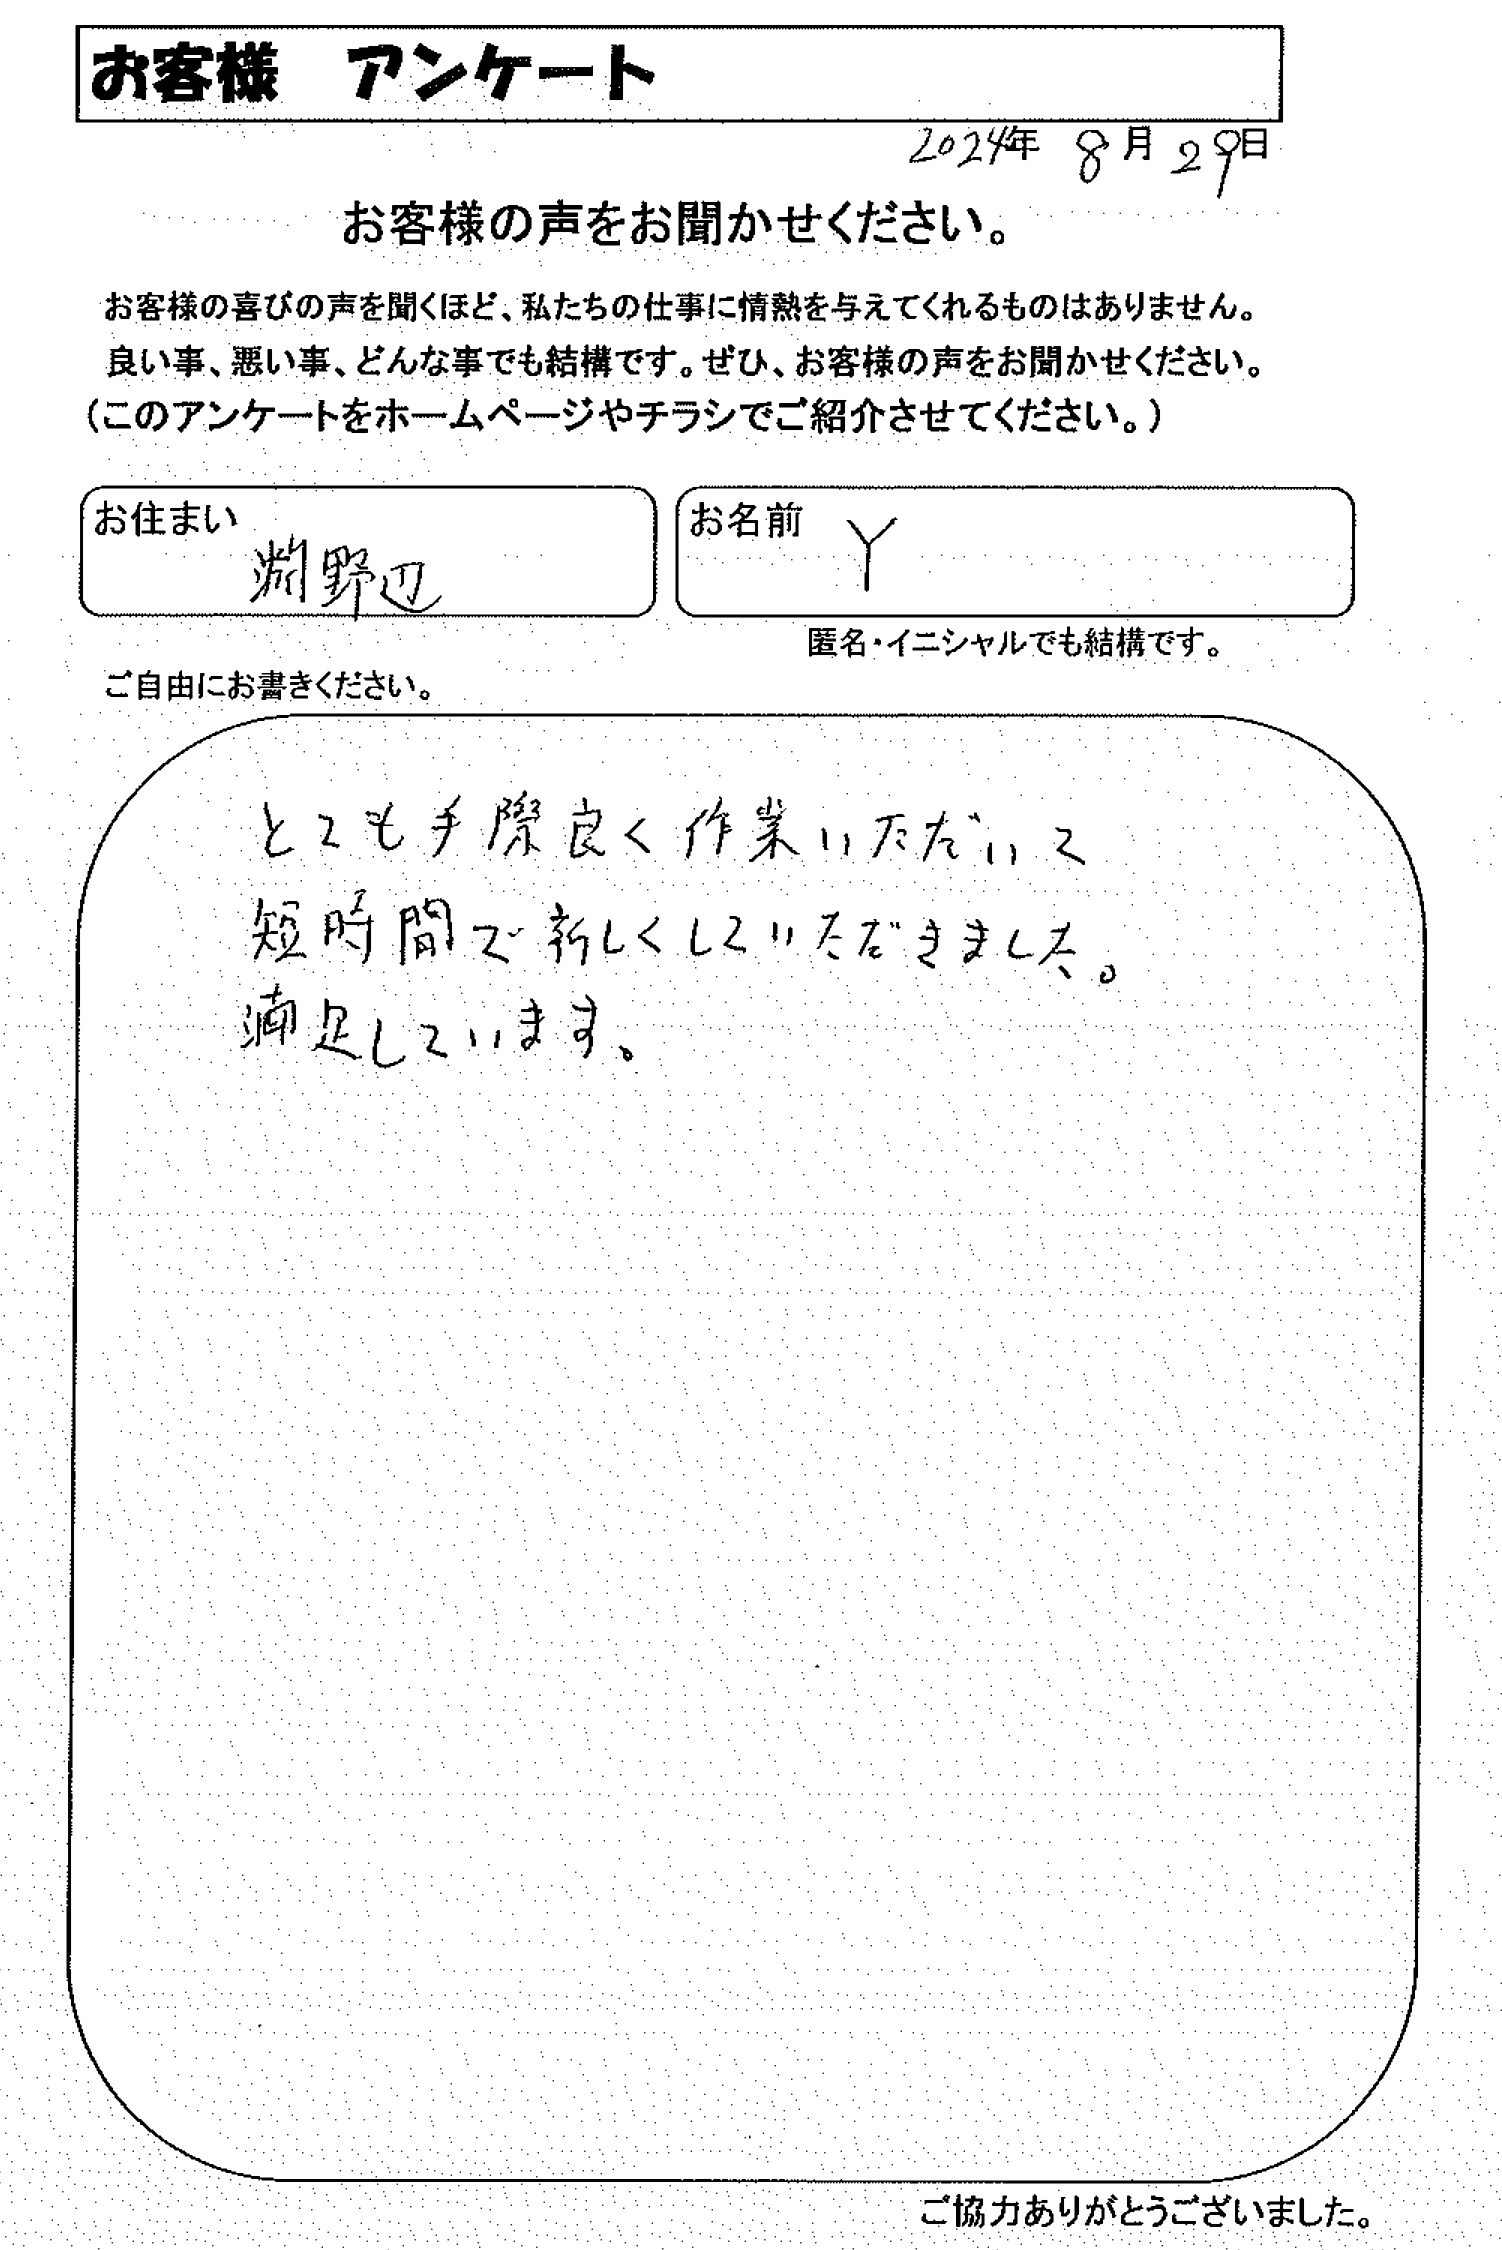 お客様　アンケート
2024年 8月29日
お客様の声をお聞かせください。
お客様の喜びの声を聞くほど、私たちの仕事に情熱を与えてくれるものはありません。
良い事、悪い事、どんな事でも結構です。ぜひ、お客様の声をお聞かせください。
（このアンケートをホームページやチラシでご紹介させてください。）
お住まい 淵野辺
お名前 Y
匿名・イニシャルでも結構です。
ご自由にお書きください。
とても手際良く作業いただいて
短時間で新しくしていただきました。
満足しています。
ご協力ありがとうございました。